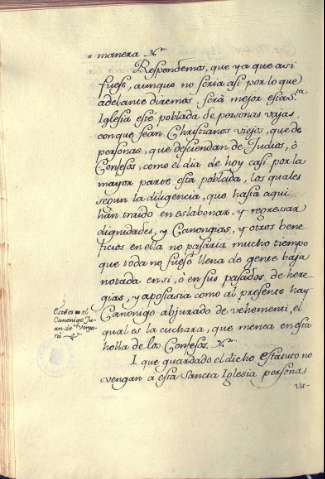 manera &.ª
Respondemos, que ya que así
fuese, aunque no sería así por lo que
adelante diremos será mejor esta S.ta
Iglesia esté poblada de personas vajas,
con que sean Chrystianos viejos, que de
personas, que desciendan de Judios, ó
Confesos, como el dia de hoy casi por la
mayor parte está poblada, los quales
segun la diligencia, que hasta aqui
han traido en eslabonar, y regressar
dignidades, y Canongias, y otros bene-
ficios en ella no pasaria mucho tiempo
que toda no fuese llena de gente baja
notada en si, ó en sus pasados de here-
gia, y apostasia como al presente hay
Canonigo abjurado de vehementi, el
qual es la cuchara, que menea en esta
holla de los Confesos. &.ª
I que guardado el dicho estatuto no
vengan á esta Sancta Iglesia personas
Este es el
Canonigo Ju-
an de Verga-
ra